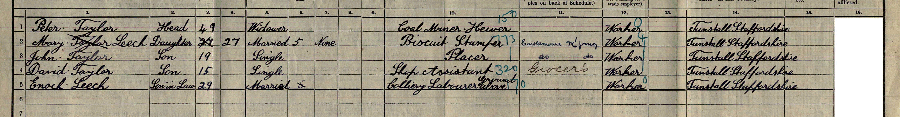 1 Peter Taylor Head 49 Widower Coal Miner Hewer Worker Tunstall Staffordshire
2 Mary Taylor Leech Daughter 27 Married 5 None Biscuit Stamper Worker Tunstall Staffordshire
3 John Taylor Son 19 Single Placer do do Worker Tunstall Staffordshire
4 David Taylor Son 15 Single Shop Assistant 320 Grocers Worker Tunstall Staffordshire
5 Enoch Leech Son in Law 29 Married Colliery Labourer Worker Tunstall Staffordshire
7